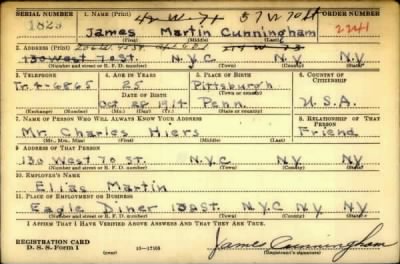 SERIAL NUMBER 1. NAME (Print) 57 W 70 St
1823 James Martin Cunningham 2241
(First) (Middle) (Last)
2. ADDRESS (Print)
130 West 70 St. N.Y.C. N.Y.
(Number and street or R. F. D. number) (Town) (County) (State)
3. TELEPHONE 4. AGE IN YEARS 5. PLACE OF BIRTH 6. COUNTRY OF CITIZENSHIP
Tr. 4-6865 25 Pittsburgh
DATE OF BIRTH (Town or county)
Oct 28 1914 Penn. U.S.A.
(Exchange) (Number) (Mo.) (Day) (Yr.) (State or country)
7. NAME OF PERSON WHO WILL ALWAYS KNOW YOUR ADDRESS 8. RELATIONSHIP OF THAT PERSON
Mr. Charles Hiers Friend
(Mr., Mrs., Miss) (First) (Middle) (Last)
9. ADDRESS OF THAT PERSON
130 West 70 St. N.Y.C. N.Y. N.Y.
(Number and street or R. F. D. number) (Town) (County) (State)
10. EMPLOYER'S NAME
Elias Martin
11. PLACE OF EMPLOYMENT OR BUSINESS
Eagle Diner N.Y.C. N.Y. N.Y.
(Number and street or R. F. D. number) (Town) (County) (State)
I AFFIRM THAT I HAVE VERIFIED ABOVE ANSWERS AND THAT THEY ARE TRUE.
REGISTRATION CARD
D. S. S. Form 1 James Cunningham
(Registrant's signature)